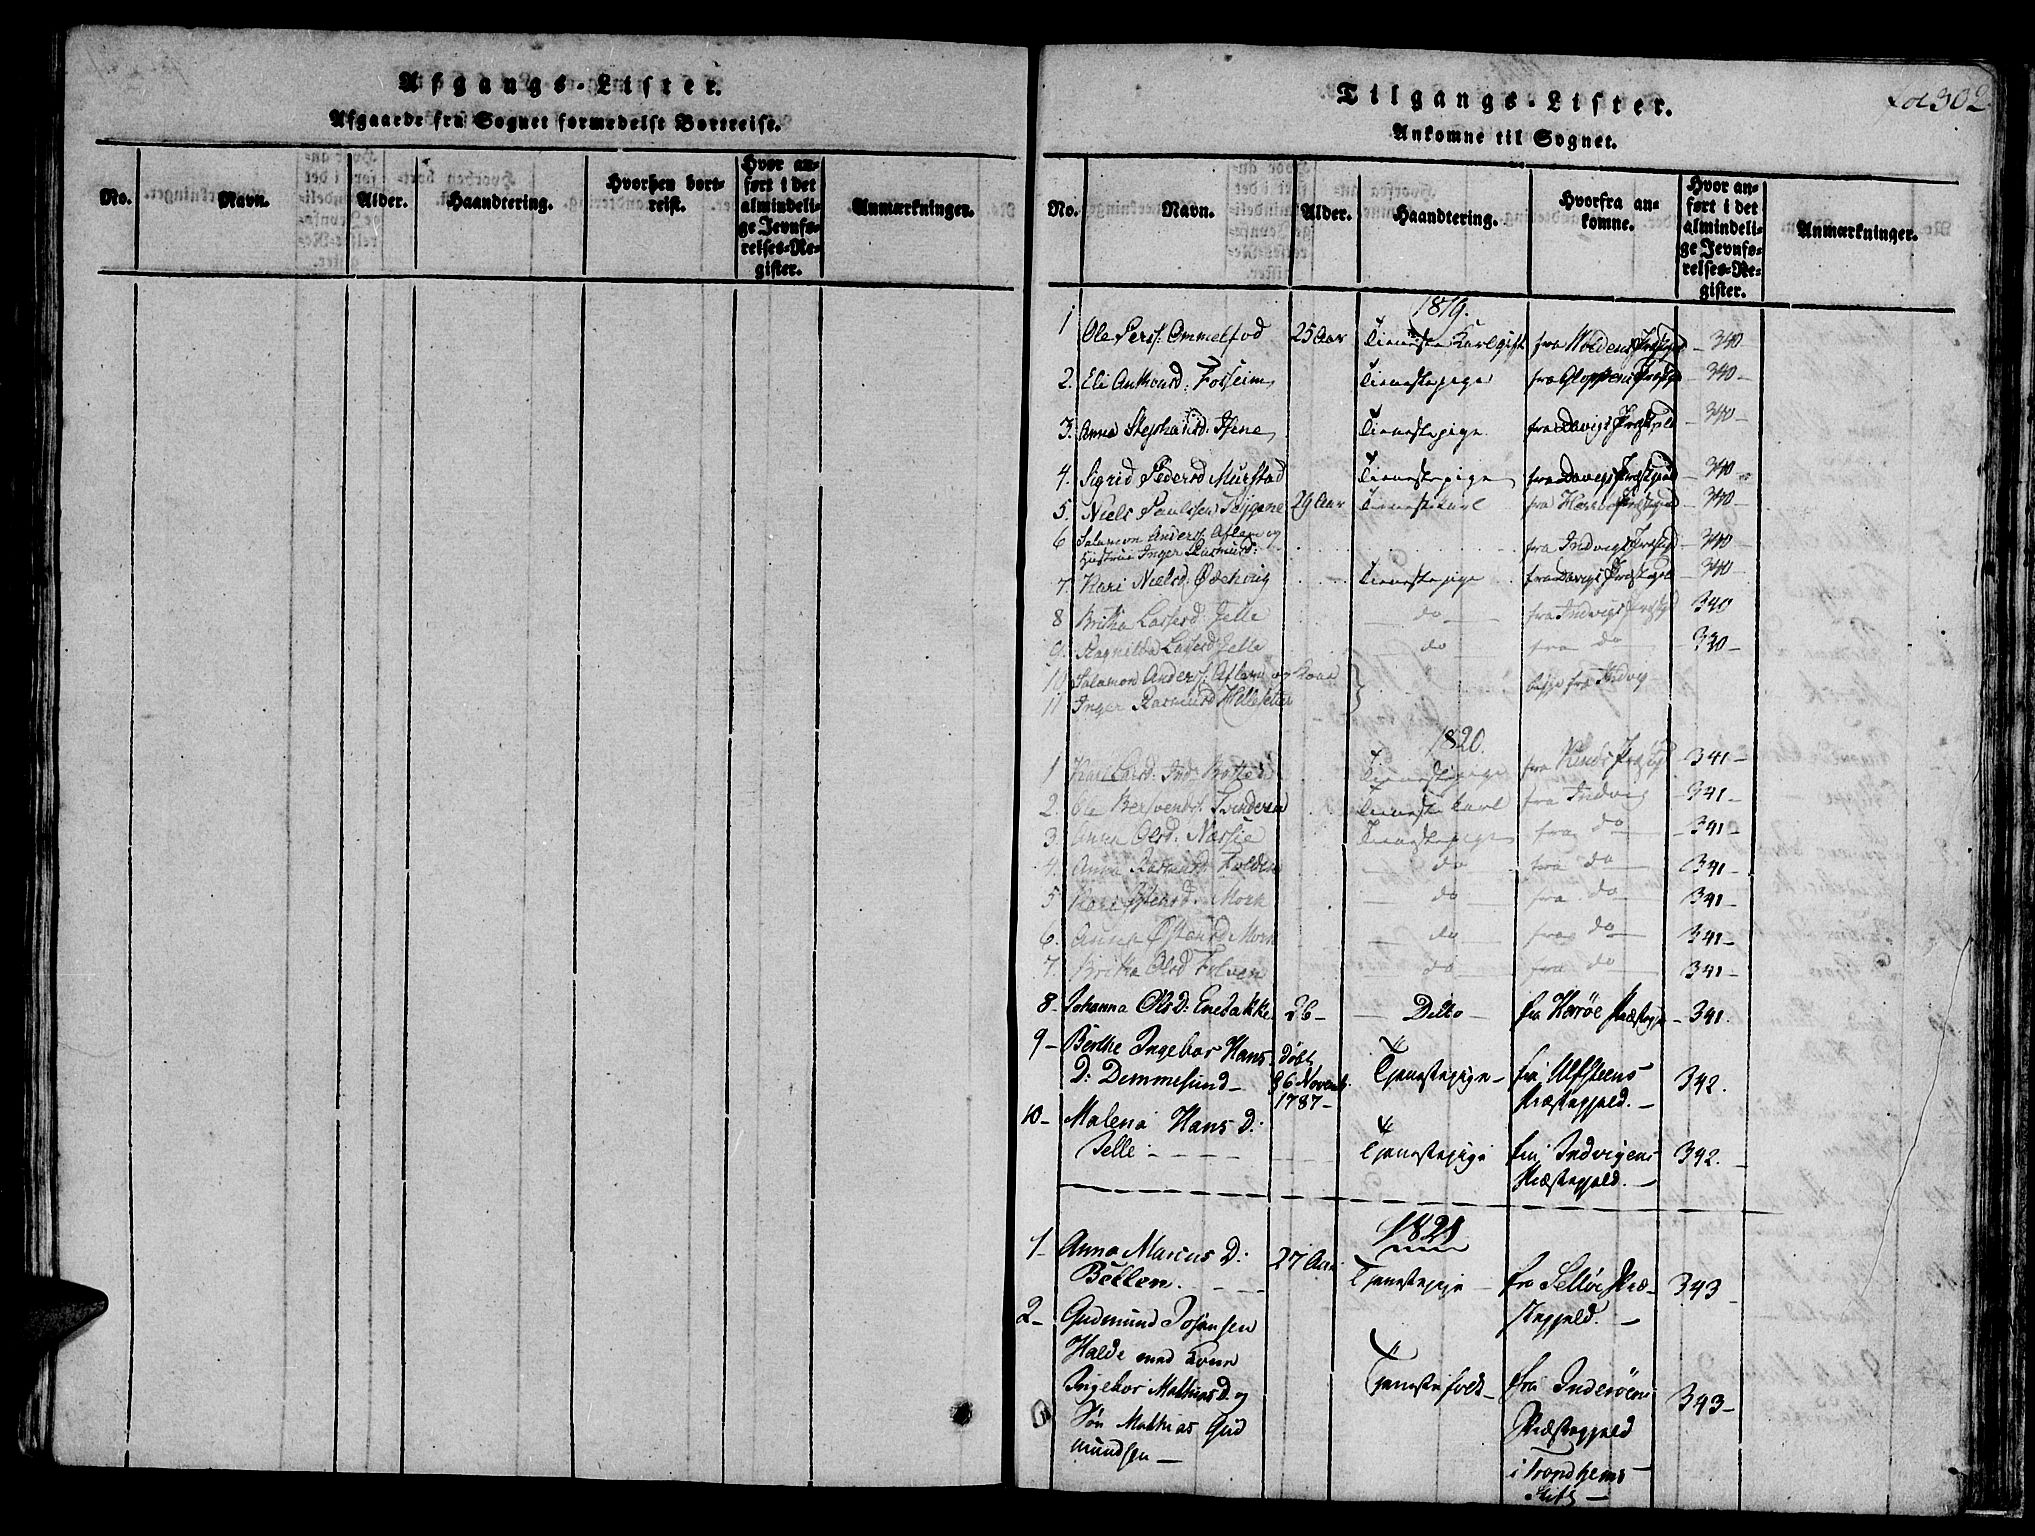 Afgangs-Lister.
Afgaarde fra Sognet formedelst Bortreise.
No. Navn. Alder. Haandtering. Hvorhen bortreist. Hvor anført i det almindelige Jevnførelses-Register. Anmærkninger.
Tilgangs-Lister. Fol 302
Ankomne til Sognet.
No. Navn. Alder. Haandtering. Hvorfra ankomne. Hvor anført i det almindelige Jevnførelses-Register. Anmærkninger.
1819.
1 Ole Pers: Ommelfod 25 Aar Tieneste Karl fra 340
2. Eli Anthonsd: Fosseim Tienestepige fra Gloppens Præstgd 340 -
3. Anna Stephansd: Isene Tienestepige fra Davigs Præstgield 340 -
4. Sigrid Pedersd Murstad Tienestepige fra Davigs Præstgield 340
5. Niels Paulssen 29 Aar Tienestekarl fra 340 -
6 Salamon Anders: Aflem og
Hustrue Inger Rasmusd: fra Indvigs Præstgd 340 -
7. Kari Nielsd: Tienestepige fra Davigs Præstgield 340
8 Britha Lassesd: Jelle do fra Indvigs Præstgd 340
9. Ragnilda Lassesd Jelle do fra do 330 -
10 Salamon Anders: Aflem og Kone
11 Inger Rasmusd Hillesetter begge fra Indvig
1820.
1 Kari Larsd: Tienestepige fra Præstgd 341 -
2. Ole Tvinderem Tieneste karl fra Indvig 341 -
3. Anna Olsd: Nossie Tienestepige fra do 341 -
4. Anna Rasmusd: Folden do fra do 341 -
5 Kari Mork do fra do 341 -
6. Anna Østensd: Mork do fra do 341 -
7. Britha Olsd Folven do fra do 341 -
8- Johanna Ols D: Enedakke 26 - Ditto - fra Herøe Præstegi 341.
9 - Berthe Ingebor Hans
D: Demmesund - Døbt 26 Novemb. 1787 - Tjenestepige - fra Ulfsteens Præstegjeld. - 342.
10 - Malena Hans D:
Jelle - Tjenestepige fra Indvigens Præstegjeld. - 342. -
1821
1- Anna Marcus D:
27 Aar Tjenestepige fra Selløe Præstegjeld. - 343 -
2- Gudmund Johansen
Halde med Kone
Ingebor Mathias D. og
Søn Mathias Gudmundsen - Tjenestefolk - fra Inderøens Præstegjeld i Trondhjems Stift - 343 -